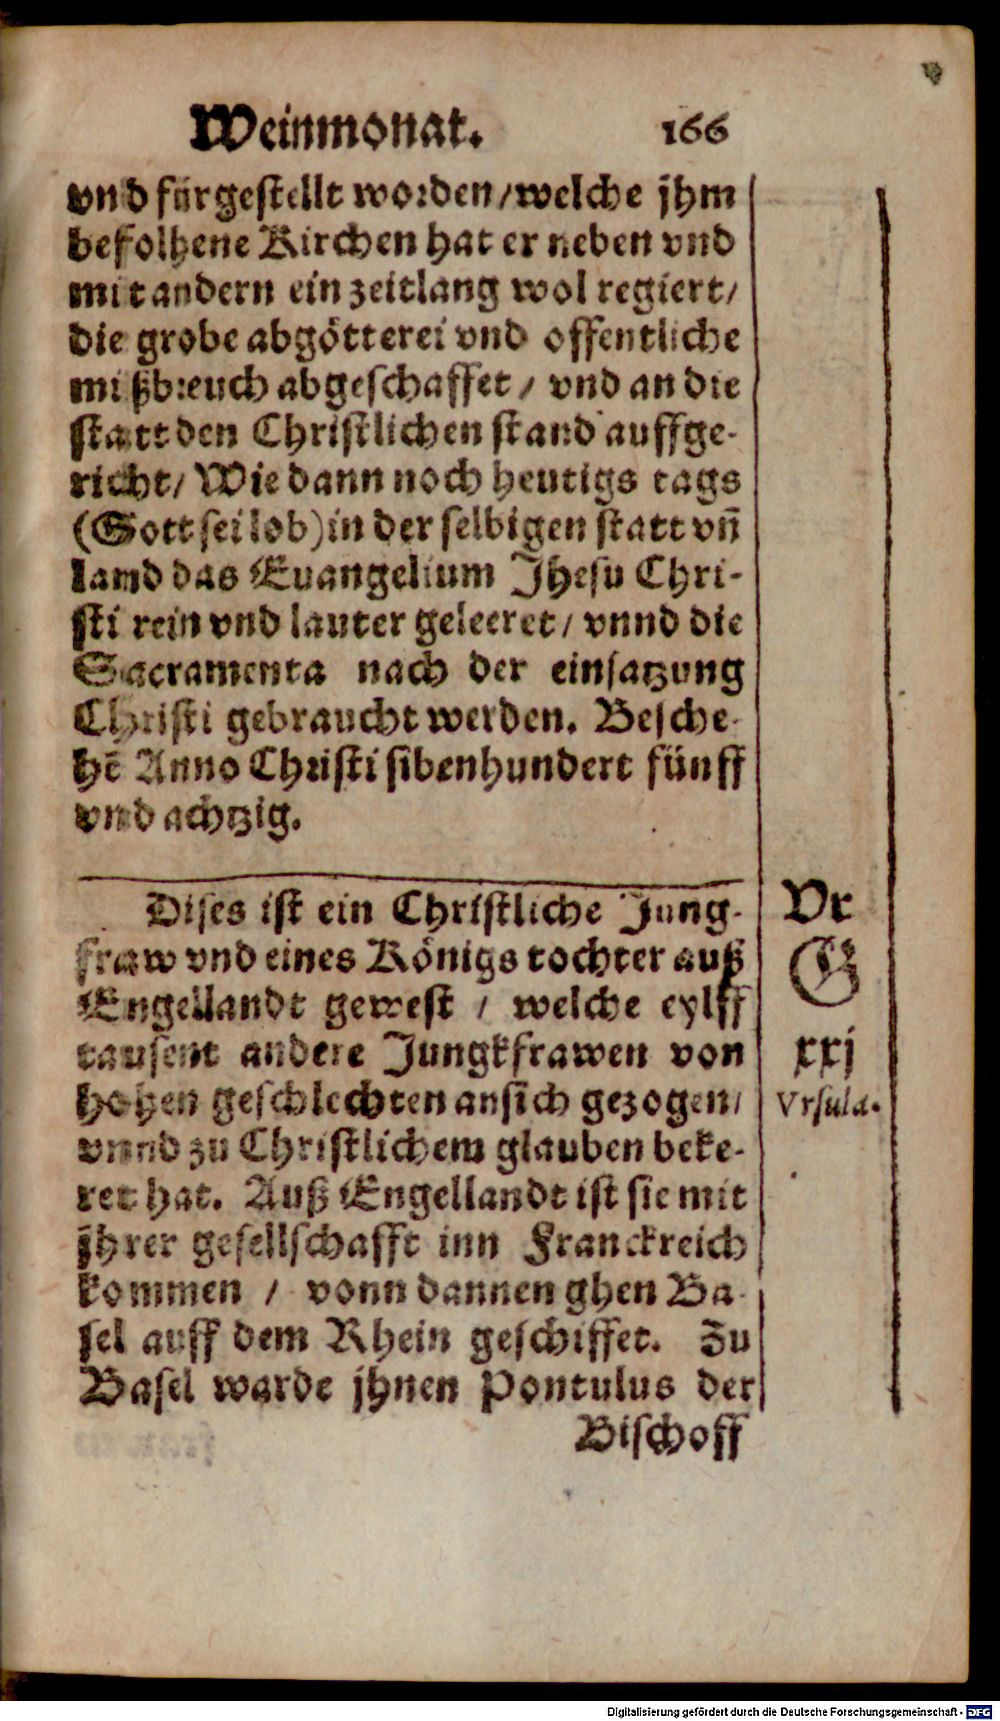 Weinmonat. 166
vnd fürgestellt worden/welche jhm
befolhene Kirchen hat er neben vnd
mit andern ein zeitlang wol regiert/
die grobe abgötterei vnd offentliche
mißbreuch abgeschaffet / vnd an die
statt den Christlichen stand auffge-
richt/ Wie dann noch heutigs tags
(Gott sei lob) in der selbigen statt vñ
land das Euangelium Jhesu Chri-
sti rein vnd lauter geleeret/ vnnd die
Sacramenta nach der einsatzung
Christi gebraucht werden. Besche-
hẽ Anno Christi sibenhundert fünff
vnd achtzig.
Dises ist ein Christliche Jung-
fraw vnd eines Königs tochter auß
Engellandt gewest / welche eylff
tausent andere Jungkfrawen von
hohen geschlechten ansich gezogen/
vnnd zu Christlichem glauben beke-
ret hat. Auß Engellandt ist sie mit
jhrer gesellschafft inn Franckreich
kommen / vonn dannen ghen Ba-
sel auff dem Rhein geschiffet. Zu
Basel warde jhnen Pontulus der
Bischoff
Vr
G
xxj
Vrsula.
Digitalisierung gefördert durch die Deutsche Forschungsgemeinschaft - DFG